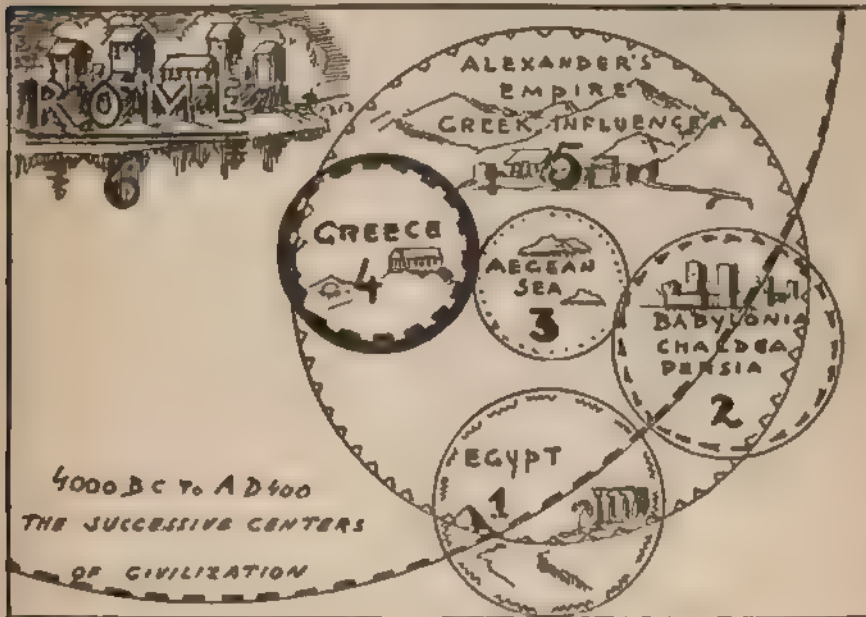 ROME
6
ALEXANDER'S
EMPIRE
GREEK INFLUENCE
5
GREECE
4
AEGEAN
SEA
3
BABYLONIA
CHALDEA
PERSIA
2
EGYPT
1
4000 BC TO AD 400
THE SUCCESSIVE CENTERS
OF CIVILIZATION